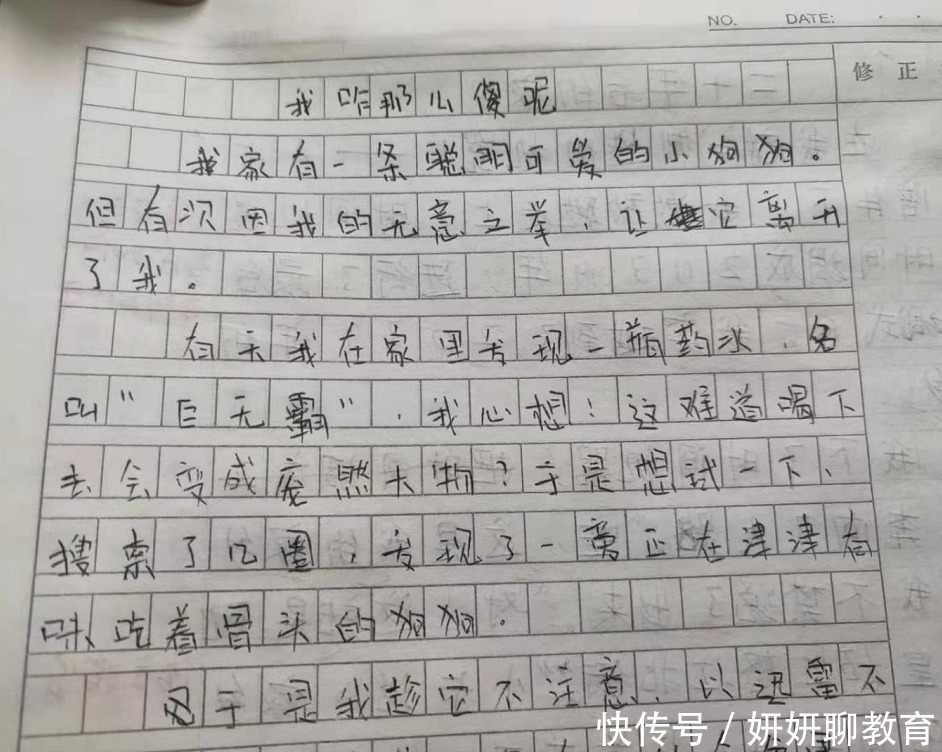 NO. DATE: · ·
修 正
我咋那么傻呢
我家有一条聪明可爱的小狗狗。
但有次因我的无意之举,让它离开
了我。
有天我在家里发现一瓶药水,名
叫"巨无霸",我心想!这难道喝下
去会变成庞然大物?于是想试一下、
搜索了几圈,发现了一旁正在津津有
味吃着骨头的狗狗.
于是我趁它不注意 以迅雷不
快传号 / 妍妍聊教育